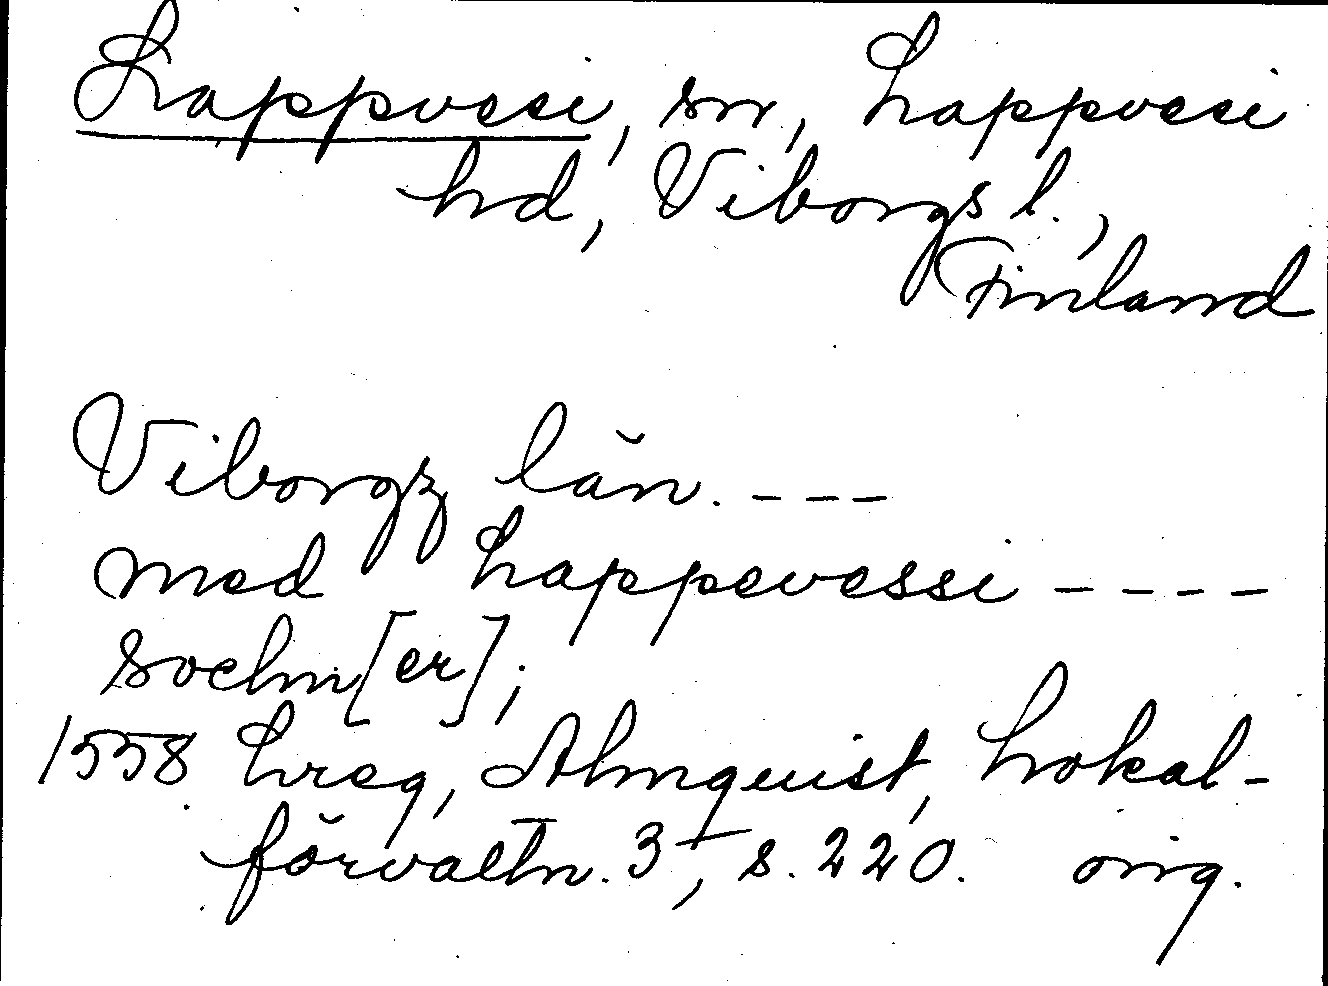 Lappvesi, sn, Lappvesi
hd, Viborgs l.,
Finland
Viborgz län. - - -
med Lappevessi - - - -
sochn[er];
1558 Lreg, Almquist, Lokal-
förvaltn. 3, s. 220. orig.